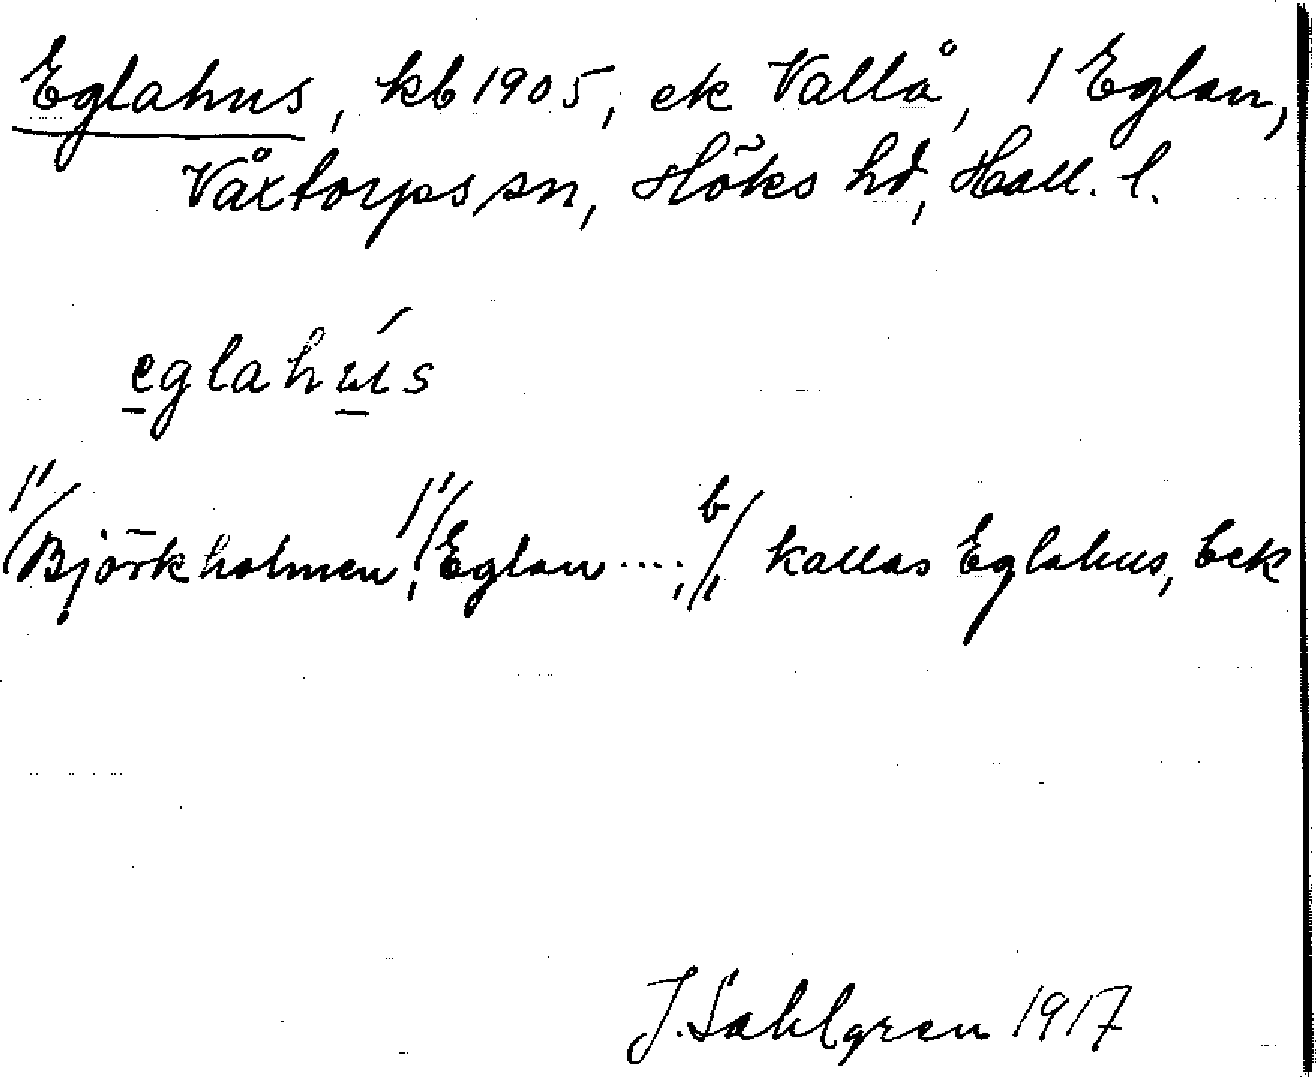 Eglahus, kb 1905, ek Vallå, / Eglan,
Våxtorps sn, Höks hd, Hall. l.
eglahús
1"/Björkholmen, 1"/Eglan ...., b/, kallas Eglahus, bek
J. Sahlgren 1917